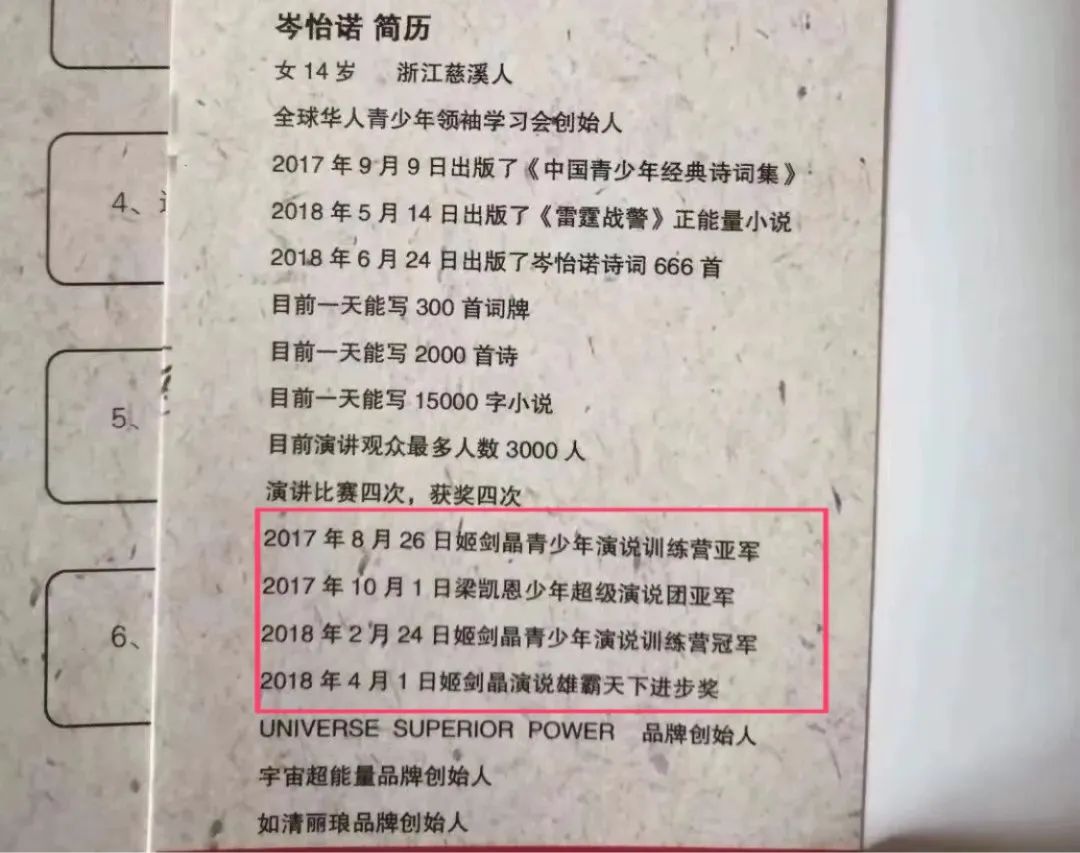 岑怡诺 简历
女 14 岁 浙江慈溪人
全球华人青少年领袖学习会创始人
2017 年 9 月 9 日出版了《中国青少年经典诗词集》
2018 年 5 月 14 日出版了《雷霆战警》正能量小说
2018 年 6 月 24 日出版了岑怡诺诗词 666 首
目前一天能写 300 首词牌
目前一天能写 2000 首诗
目前一天能写 15000 字小说
目前演讲观众最多人数 3000 人
演讲比赛四次，获奖四次
2017 年 8 月 26 日姬剑晶青少年演说训练营亚军
2017 年 10 月 1 日梁凯恩少年超级演说团亚军
2018 年 2 月 24 日姬剑晶青少年演说训练营冠军
2018 年 4 月 1 日姬剑晶演说雄霸天下进步奖
UNIVERSE SUPERIOR POWER 品牌创始人
宇宙超能量品牌创始人
如清丽琅品牌创始人
4、
5、
6、